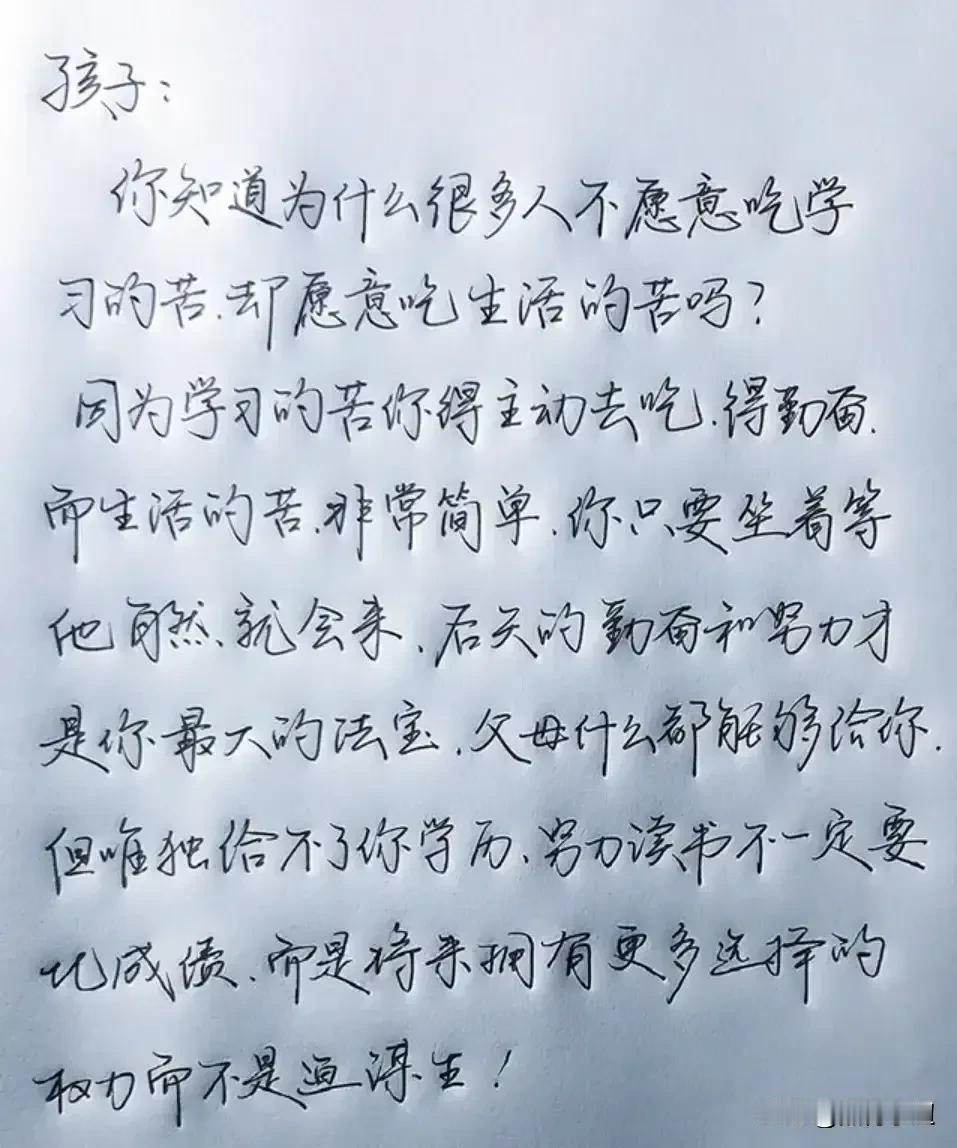 孩子：
你知道为什么很多人不愿意吃学
习的苦.却愿意吃生活的苦吗？
因为学习的苦你得主动去吃.得勤奋.
而生活的苦.非常简单.你只要坐着等
他自然.就会来.后天的勤奋和努力才
是你最大的法宝.父母什么都能够给你.
但唯独给不了你学历、努力读书不一定要
比成绩、而是将来拥有更多选择的
权力而不是迫谋生！